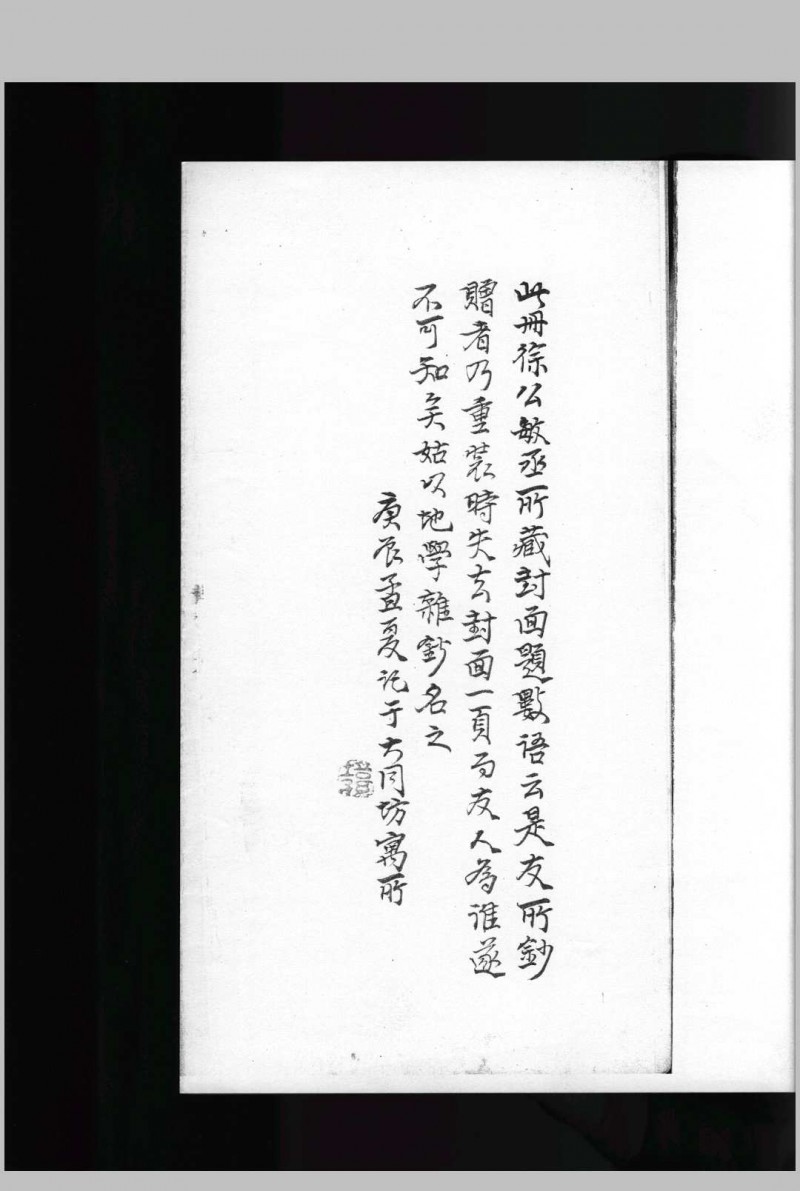 此冊徐公敏丞所藏封面題數语云是友所鈔
贈者乃重裝時失去封面一頁而友人為谁遂
不可知矣姑以地學雜鈔名之
庚辰孟夏记于大同坊寓所